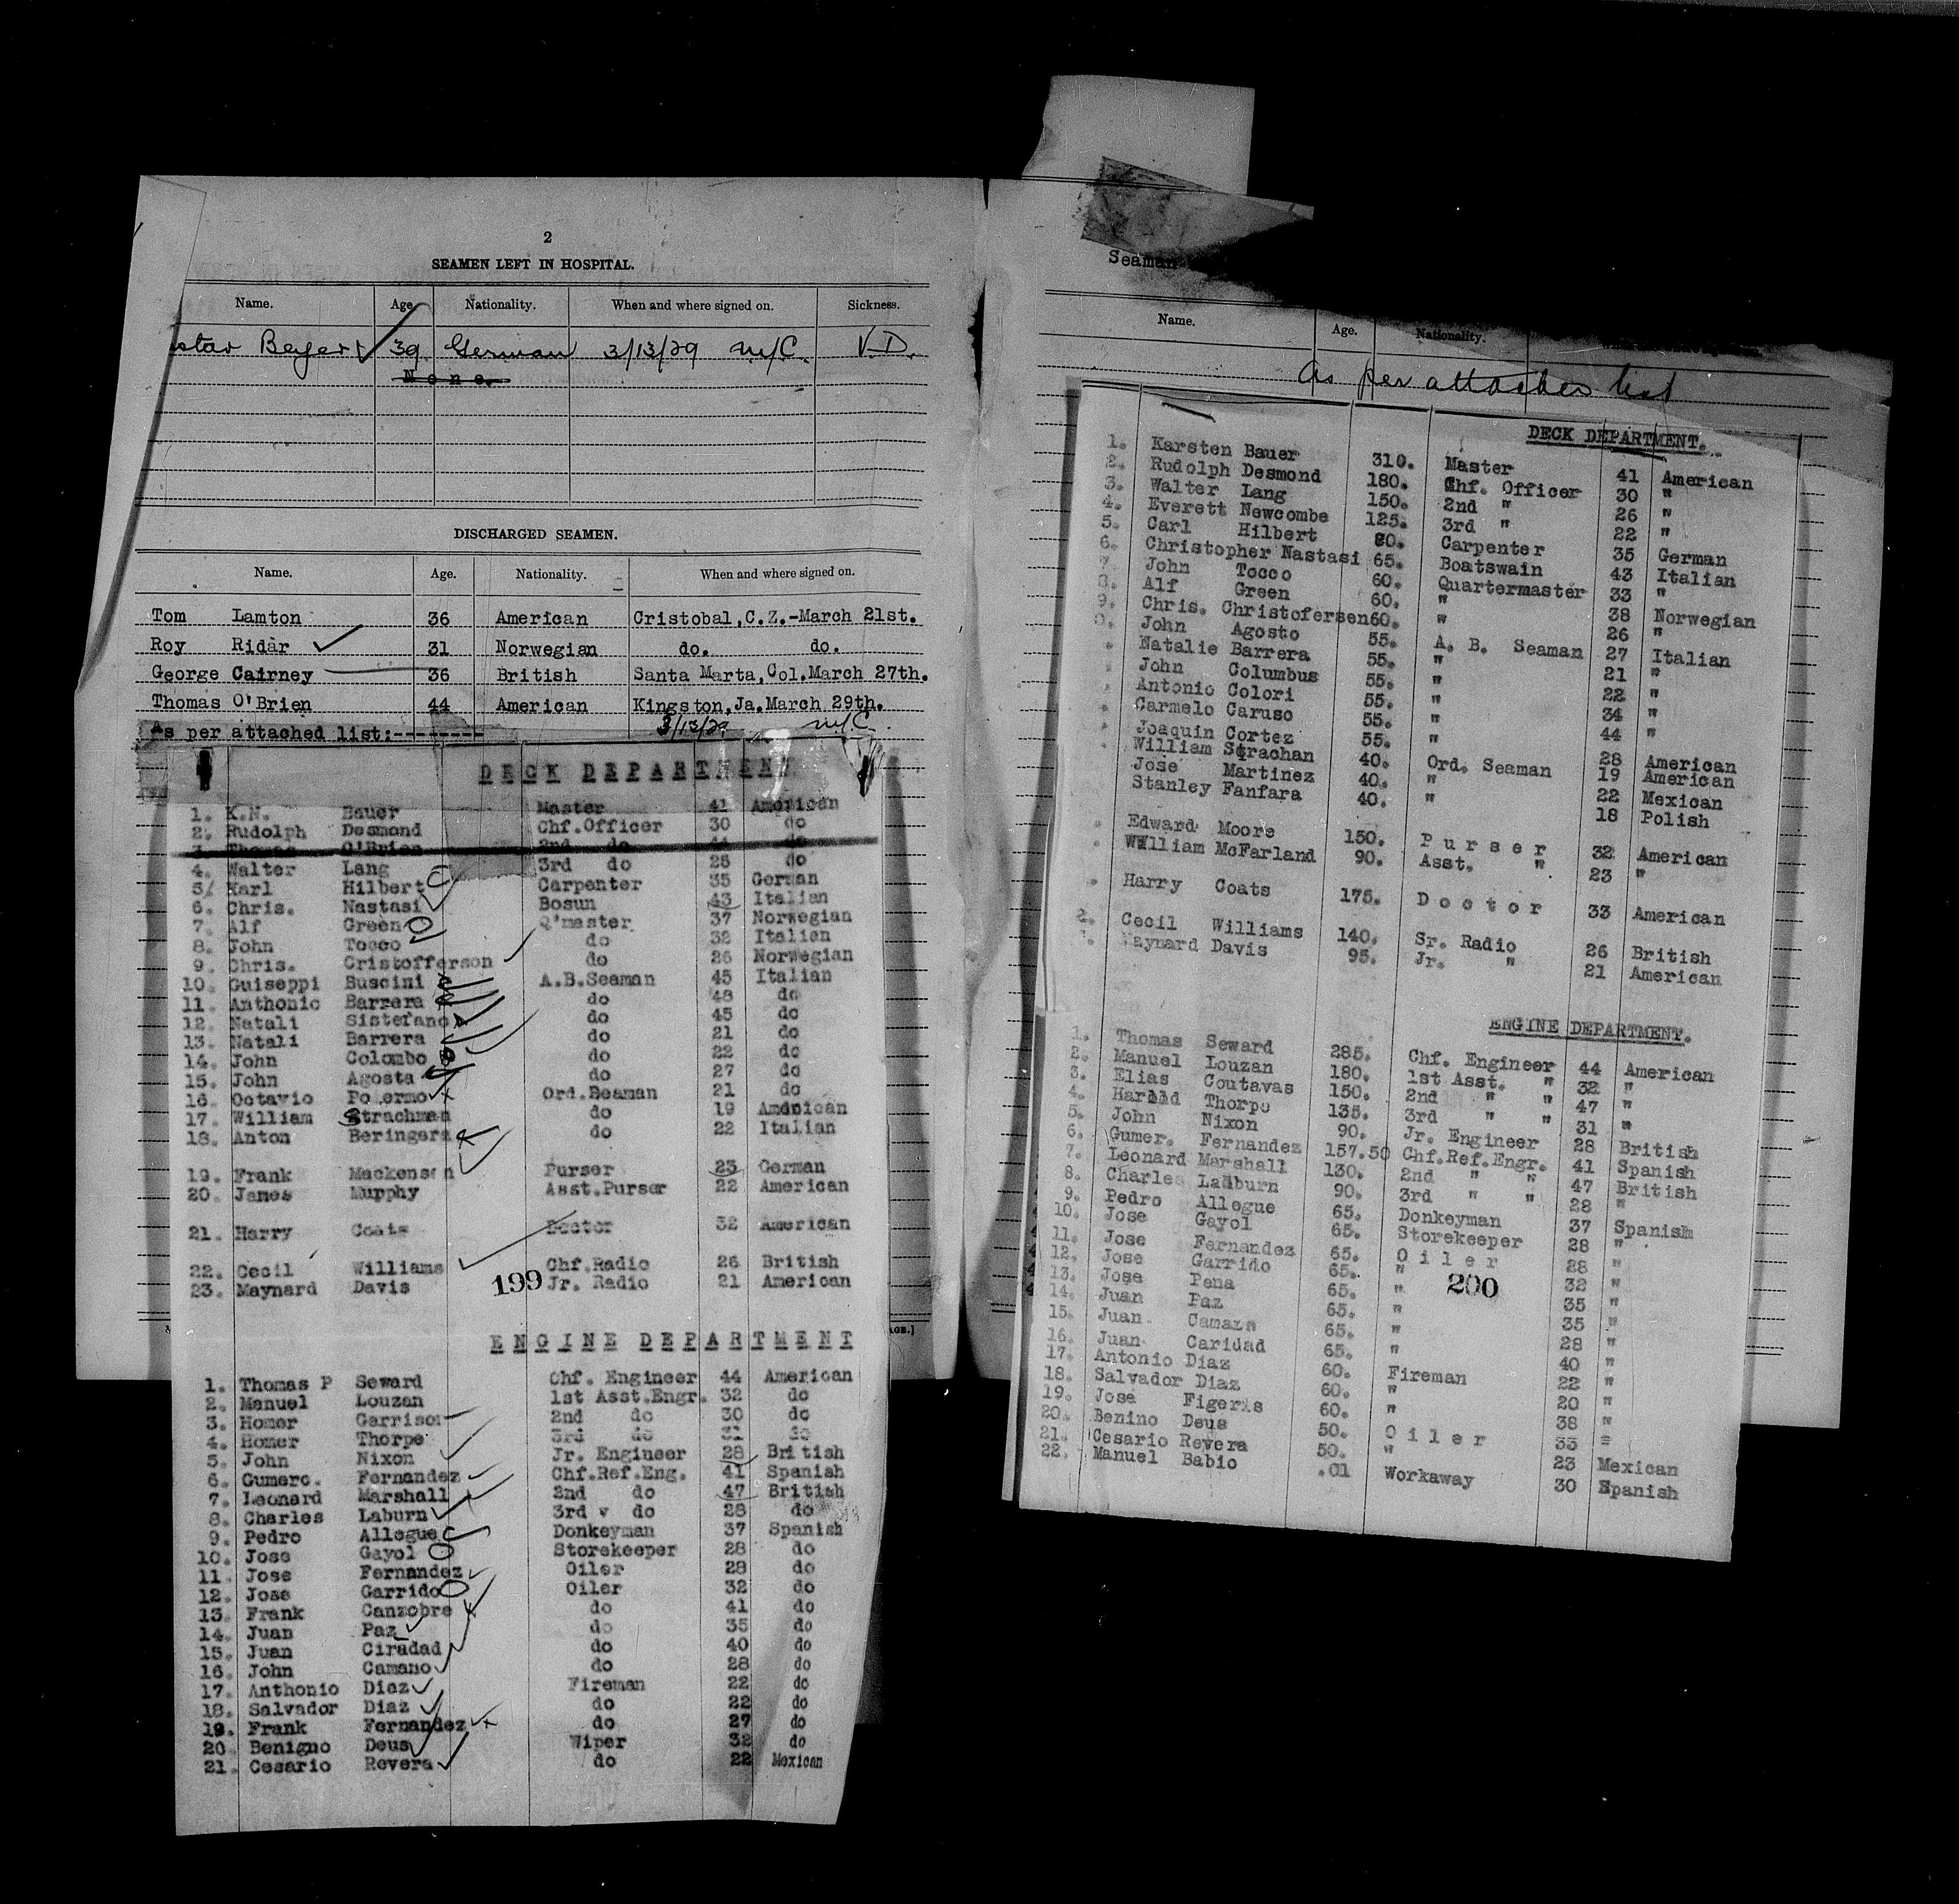 2
SEAMEN LEFT IN HOSPITAL.
Name. Age Nationality. When and where signed on. Sickness.
Beyer 39 German 3/13/29 N.Y.C. V.D.
None.
DISCHARGED SEAMEN.
Name. Age. Nationality. When and where signed on.
Tom Lamton 36 American Cristobal,C.Z.-March 21st.
Roy Ridar 31 Norwegian do. do.
George Cairney 36 British Santa Marta,Col.March 27th.
Thomas O'Brien 44 American Kingston,Ja.March 29th.
As per attached list:-------- 3/13/29 N.Y.C.
DECK DEPARTMENT
1. K.N. Bauer Master 41 American
2. Rudolph Desmond Chf.Officer 30 do
3. Thomas O'Brien 2nd do 44 do
4. Walter Lang 3rd do 25 do
5/ Karl Hilbert Carpenter 35 German
6. Chris. Nastasi Bosun 43 Italian
7. Alf Green Q'master 37 Norwegian
8. John Tocco do 32 Italian
9. Chris. Cristofferson do 26 Norwegian
10. Guiseppi Buscini A.B.Seaman 45 Italian
11. Anthonio Barrera do 48 do
12. Natali Sistefano do 45 do
13. Natali Barrera do 21 do
14. John Colombo do 22 do
15. John Agosta do 27 do
16. Octavio Polermo Ord.Seaman 21 do
17. William Strachman do 19 American
18. Anton Beringera do 22 Italian
19. Frank Mackensen Purser 23 German
20. James Murphy Asst.Purser 22 American
21. Harry Coats Doctor 32 American
22. Cecil Williams Chf.Radio 26 British
23. Maynard Davis 199 Jr. Radio 21 American
AGE.]
ENGINE DEPARTMENT
1. Thomas P Seward Chf. Engineer 44 American
2. Manuel Louzan 1st Asst.Engr. 32 do
3. Homer Garrison 2nd do 30 do
4. Homer Thorpe 3rd do 31 do
5. John Nixon Jr. Engineer 28 British
6. Gumerc. Fernandez Chf.Ref.Eng. 41 Spanish
7. Leonard Marshall 2nd do 47 British
8. Charles Laburn 3rd do 28 do
9. Pedro Allegue Donkeyman 37 Spanish
10. Jose Gayol Storekeeper 28 do
11. Jose Fernandez Oiler 28 do
12. Jose Garrido Oiler 32 do
13. Frank Canzobre do 41 do
14. Juan Paz do 35 do
15. Juan Ciradad do 40 do
16. John Camano do 28 do
17. Anthonio Diaz Fireman 22 do
18. Salvador Diaz do 22 do
19. Frank Fernandez do 27 do
20 Benigno Deus Wiper 32 do
21. Cesario Revera do 22 Mexican
Seaman
Name. Age. Nationality.
As per attached list
DECK DEPARTMENT.
1. Karsten Bauer 310. Master 41 American
2. Rudolph Desmond 180. Chf. Officer 30 "
3. Walter Lang 150. 2nd " 26 "
4. Everett Newcombe 125. 3rd " 22 "
5. Carl Hilbert 80. Carpenter 35 German
6. Christopher Nastasi 65. Boatswain 43 Italian
7. John Tocco 60. Quartermaster 33 "
8. Alf Green 60. " 38 Norwegian
9. Chris. Christofersen 60. " 26 "
0. John Agosto 55. A. B. Seaman 27 Italian
. Natalie Barrera 55. " 21 "
. John Columbus 55. " 22 "
. Antonio Colori 55. " 34 "
. Carmelo Caruso 55. " 44 "
. Joaquin Cortez 55. " 28 American
. William Strachan 40. Ord. Seaman 19 American
Jose Martinez 40. " 22 Mexican
Stanley Fanfara 40. " 18 Polish
. Edward Moore 150. Purser 32 American
. William McFarland 90. Asst. " 23 "
. Harry Coats 175. Doctor 33 American
2. Cecil Williams 140. Sr. Radio 26 British
. Maynard Davis 95. Jr. " 21 American
ENGINE DEPARTMENT.
1. Thomas Seward 285. Chf. Engineer 44 American
2. Manuel Louzan 180. 1st Asst. " 32 "
3. Elias Coutavas 150. 2nd " " 47 "
4. Harold Thorpe 135. 3rd " " 31 "
5. John Nixon 90. Jr. Engineer 28 British
6. Gumer. Fernandez 157.50 Chf.Ref.Engr. 41 Spanish
7. Leonard Marshall 130. 2nd " " 47 British
8. Charles Laburn 90. 3rd " " 28 "
9. Pedro Allegue 65. Donkeyman 37 Spanish
10. Jose Gayol 65. Storekeeper 28 "
11. Jose Fernandez 65. Oiler 28 "
12. Jose Garrido 65. " 32 "
13. Jose Pena 65. " 35 "
14. Juan Paz 65. " 35 "
15. Juan Camano 65. " 28 "
16. Juan Caridad 65. " 40 "
17. Antonio Diaz 60. Fireman 22 "
18. Salvador Diaz 60. " 20 "
19. Jose Figeris 60. " 38 "
20. Benino Deus 50. Oiler 33 "
21. Cesario Revera 50. " 23 Mexican
22. Manuel Babio .01 Workaway 30 Spanish
200